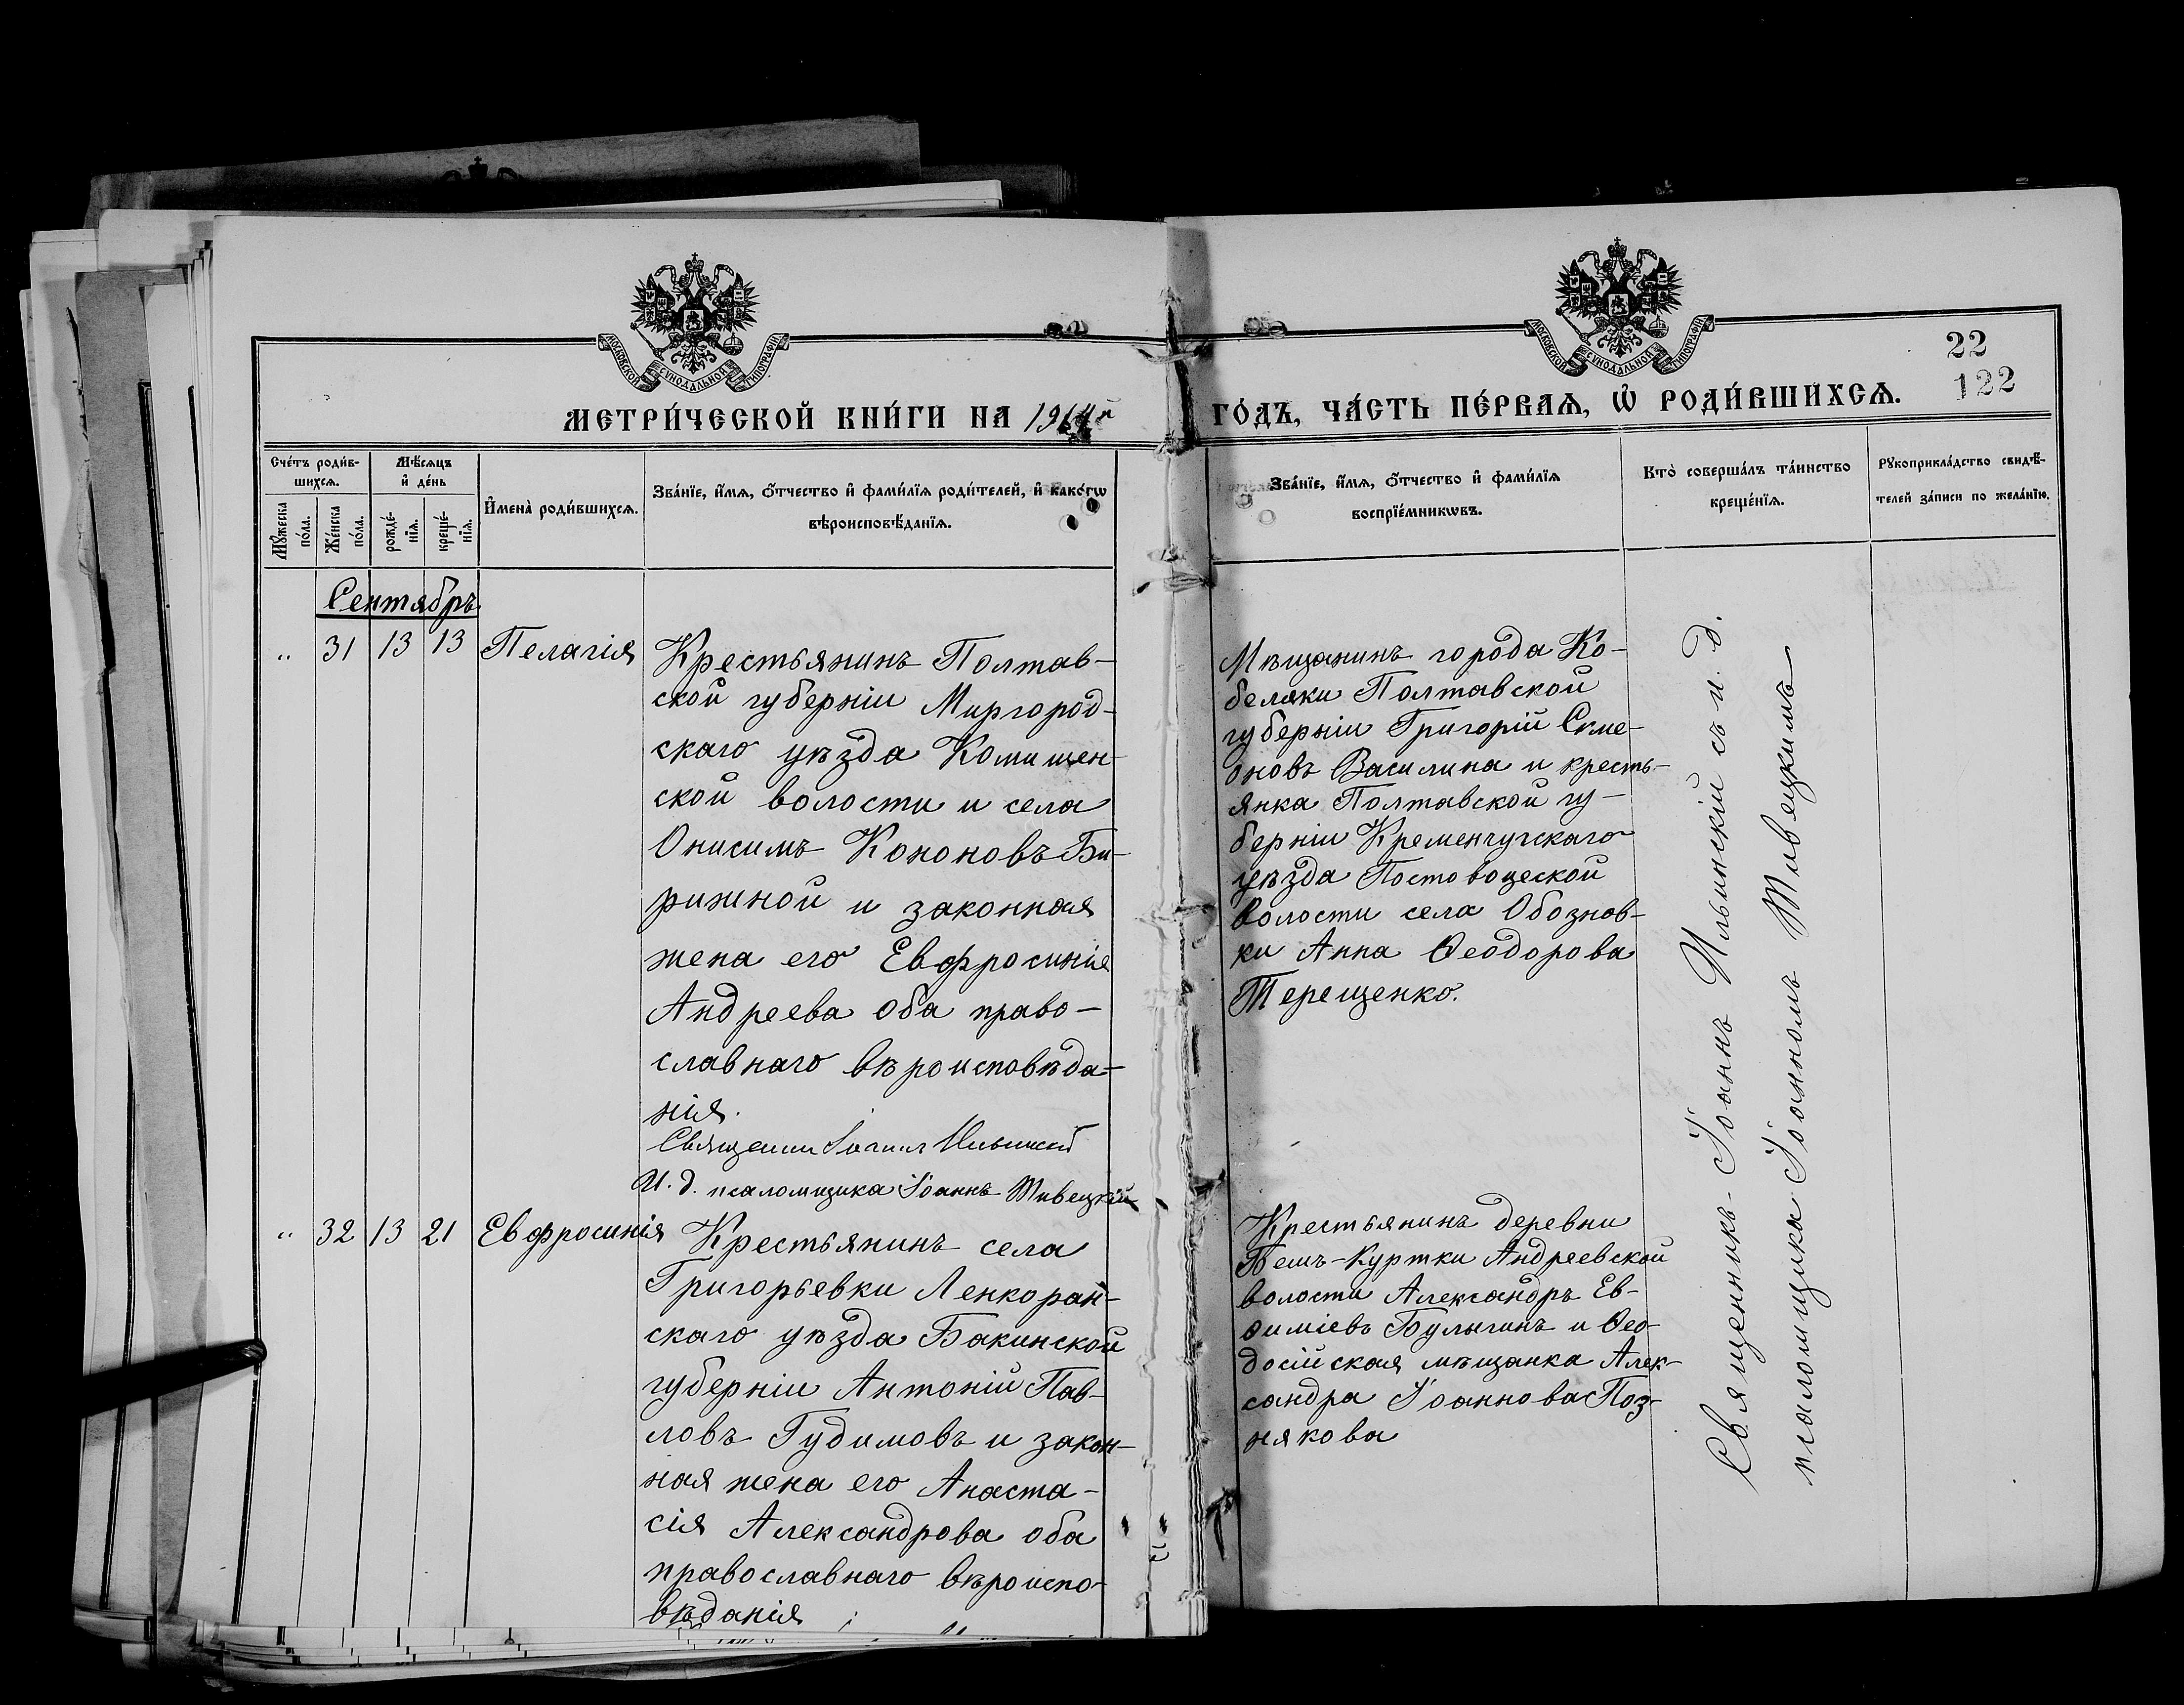 МОСКОВСКОЙ СѴНОДАЛЬНОЙ ТИПОГРАФІИ
МОСКОВСКОЙ СѴНОДАЛЬНОЙ ТИПОГРАФІИ
22
122
МЕТРИ́ЧЕСКОЙ КНИ́ГИ НА 1914й
ГО́ДЪ, ЧА́СТЬ ПЕ́РВАѦ, Ѽ РОДИ́ВШИХСѦ.
Сче́тъ роди́в-
шихсѧ.
Мꙋ́жеска по́ла.
Же́нска по́ла.
Мѣ́сѧцъ и҆ де́нь
рожде́-нїѧ.
креще́-нїѧ.
И҆мена̀ роди́вшихсѧ.
Зва́нїе, и҆́мѧ, ѻ҆́тчество и҆ фами́лїѧ роди́телей, и҆ како́гѡ
вѣроисповѣ́данїѧ.
Зва́нїе, и҆́мѧ, ѻ҆́тчество и҆ фами́лїѧ
воспрїе́мникѡвъ.
Кто̀ соверша́лъ та́инство
креще́нїѧ.
Рꙋкоприкла́дство свидѣ́-
телей за́писи по жела́нїю.
Сентябрь
" 31 13 13 Пелагія
Крестьянинъ Полтав-
ской губерніи Миргород-
скаго уѣзда Комишен-
ской волости и села
Онисимъ Кононовъ Би-
рижной и законная
жена его Евфросинія
Андреева оба право-
славнаго вѣроисповѣда-
нія.
Священник Іоаннъ Ильинскій
И. д. псаломщика Іоаннъ Тивецкій
Мѣщанинъ города Ко-
беляки Полтавской
губерніи Григорій Симе-
оновъ Василина и кресть-
янка Полтавской гу-
берніи Кременчугскаго
уѣзда
волости села Обознов-
ки Анна Ѳеодорова
Терещенко.
" 32 13 21 Евфросинія
Крестьянинъ села
Григорьевки Ленкоран-
скаго уѣзда Бакинской
губерніи Антоній Пав-
ловъ Гудимовъ и закон-
ная жена его Анаста-
сія Александрова оба
православнаго вѣроиспо-
вѣданія
Крестьянинъ деревни
Бешъ-Куртки Андреевской
волости Александръ Ев-
ѳиміевъ Булыгинъ и Ѳео-
досійская мѣщанка Алек-
сандра Іоаннова Поз-
някова
Священникъ Іоаннъ Ильинскій съ и. д.
псаломщика Іоанномъ Тивецкимъ